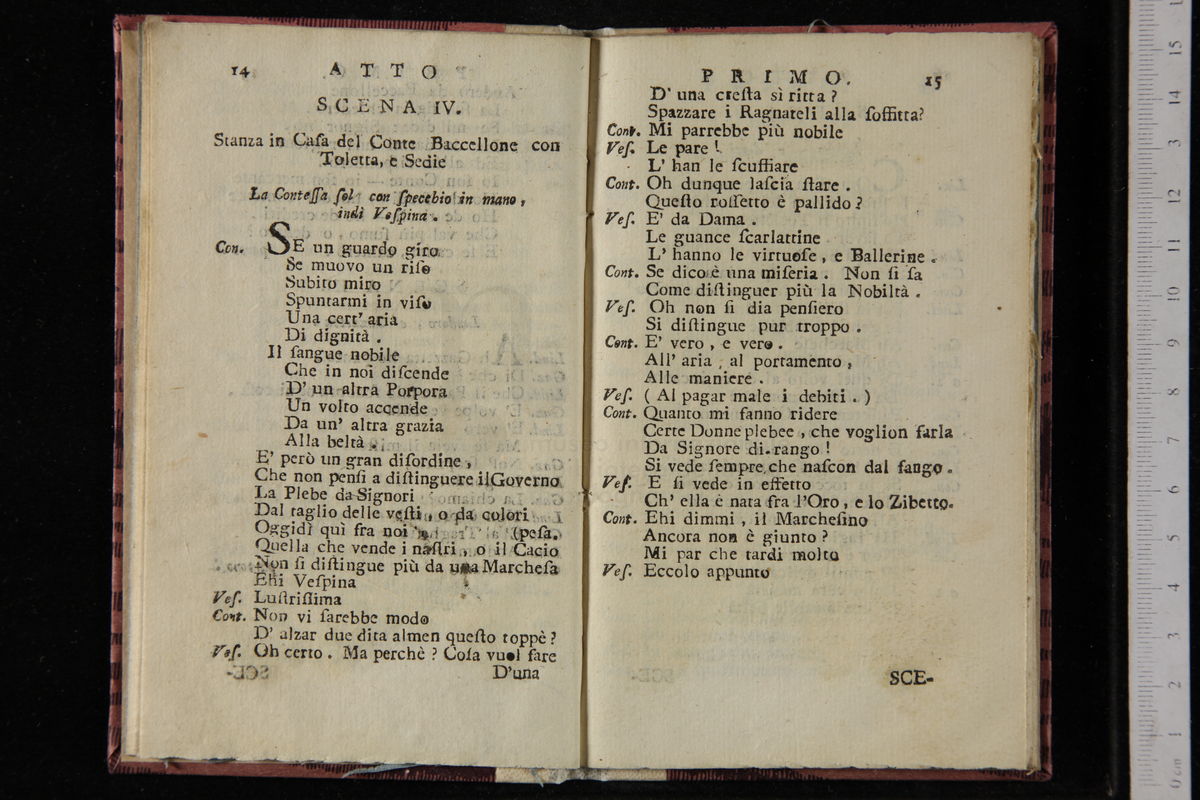 14 ATTO
SCENA IV.
Stanza in Caſa del Conte Baccellone con
Toletta, e Sedie
La Conteſſa ſol' con ſpecchio in mano,
indi Veſpina.
Con. SE un guardo giro
Se muovo un riſo
Subito miro
Spuntarmi in viſo
Una cert' aria
Di dignità.
Il ſangue nobile
Che in noi diſcende
D' un altra Porpora
Un volto accende
Da un' altra grazia
Alla beltà.
E' però un gran diſordine,
Che non penſi a diſtinguere il Governo
La Plebe da Signori
Dal taglio delle veſti, o da colori
Oggidì quì fra noi (peſa.
Quella che vende i naſtri, o il Cacio
Non ſi diſtingue più da una Marcheſa
Ehi Veſpina
Veſ. Luſtriſſima
Cont. Non vi ſarebbe modo
D' alzar due dita almen queſto toppè?
Veſ. Oh certo. Ma perchè? Coſa vuol fare
D'una
PRIMO. 15
D' una creſta sì ritta?
Spazzare i Ragnateli alla ſoffitta?
Cont. Mi parrebbe più nobile
Veſ. Le pare!
L' han le ſcuffiare
Cont. Oh dunque laſcia ſtare.
Queſto roſſetto è pallido?
Veſ. E' da Dama.
Le guance ſcarlattine
L' hanno le virtuoſe, e Ballerine.
Cont. Se dico è una miſeria. Non ſi ſa
Come diſtinguer più la Nobiltà.
Veſ. Oh non ſi dia penſiero
Si diſtingue pur troppo.
Cont. E' vero, e vero.
All' aria, al portamento,
Alle maniere.
Veſ. (Al pagar male i debiti.)
Cont. Quanto mi fanno ridere
Certe Donne plebee, che voglion farla
Da Signore di rango!
Si vede ſempre che naſcon dal fango.
Veſ. E ſi vede in effetto
Ch' ella è nata fra l'Oro, e lo Zibetto.
Cont. Ehi dimmi, il Marcheſino
Ancora non è giunto?
Mi par che tardi molto
Veſ. Eccolo appunto
SCE-
0 cm 1 2 3 4 5 6 7 8 9 10 11 12 13 14 15